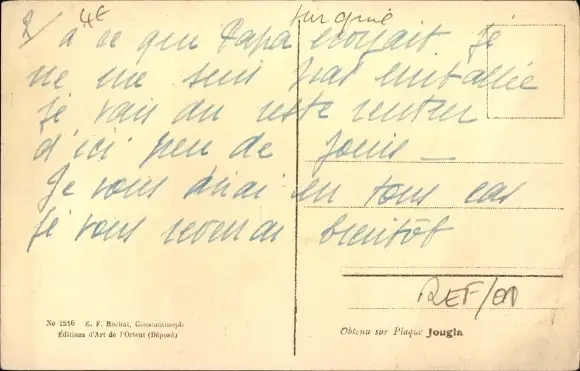 2/ 4€ turquie
à ce que Papa croyait je
ne me suis pas emballée
je vais du reste rentrer
d'ici peu de jours —
Je vous dirai en tous cas
je vous reverrai bientôt
REF/
No 1216 E. F. Rochat, Constantinople
Éditions d'Art de l'Orient (Déposé)
Obtenu sur Plaque Jougla